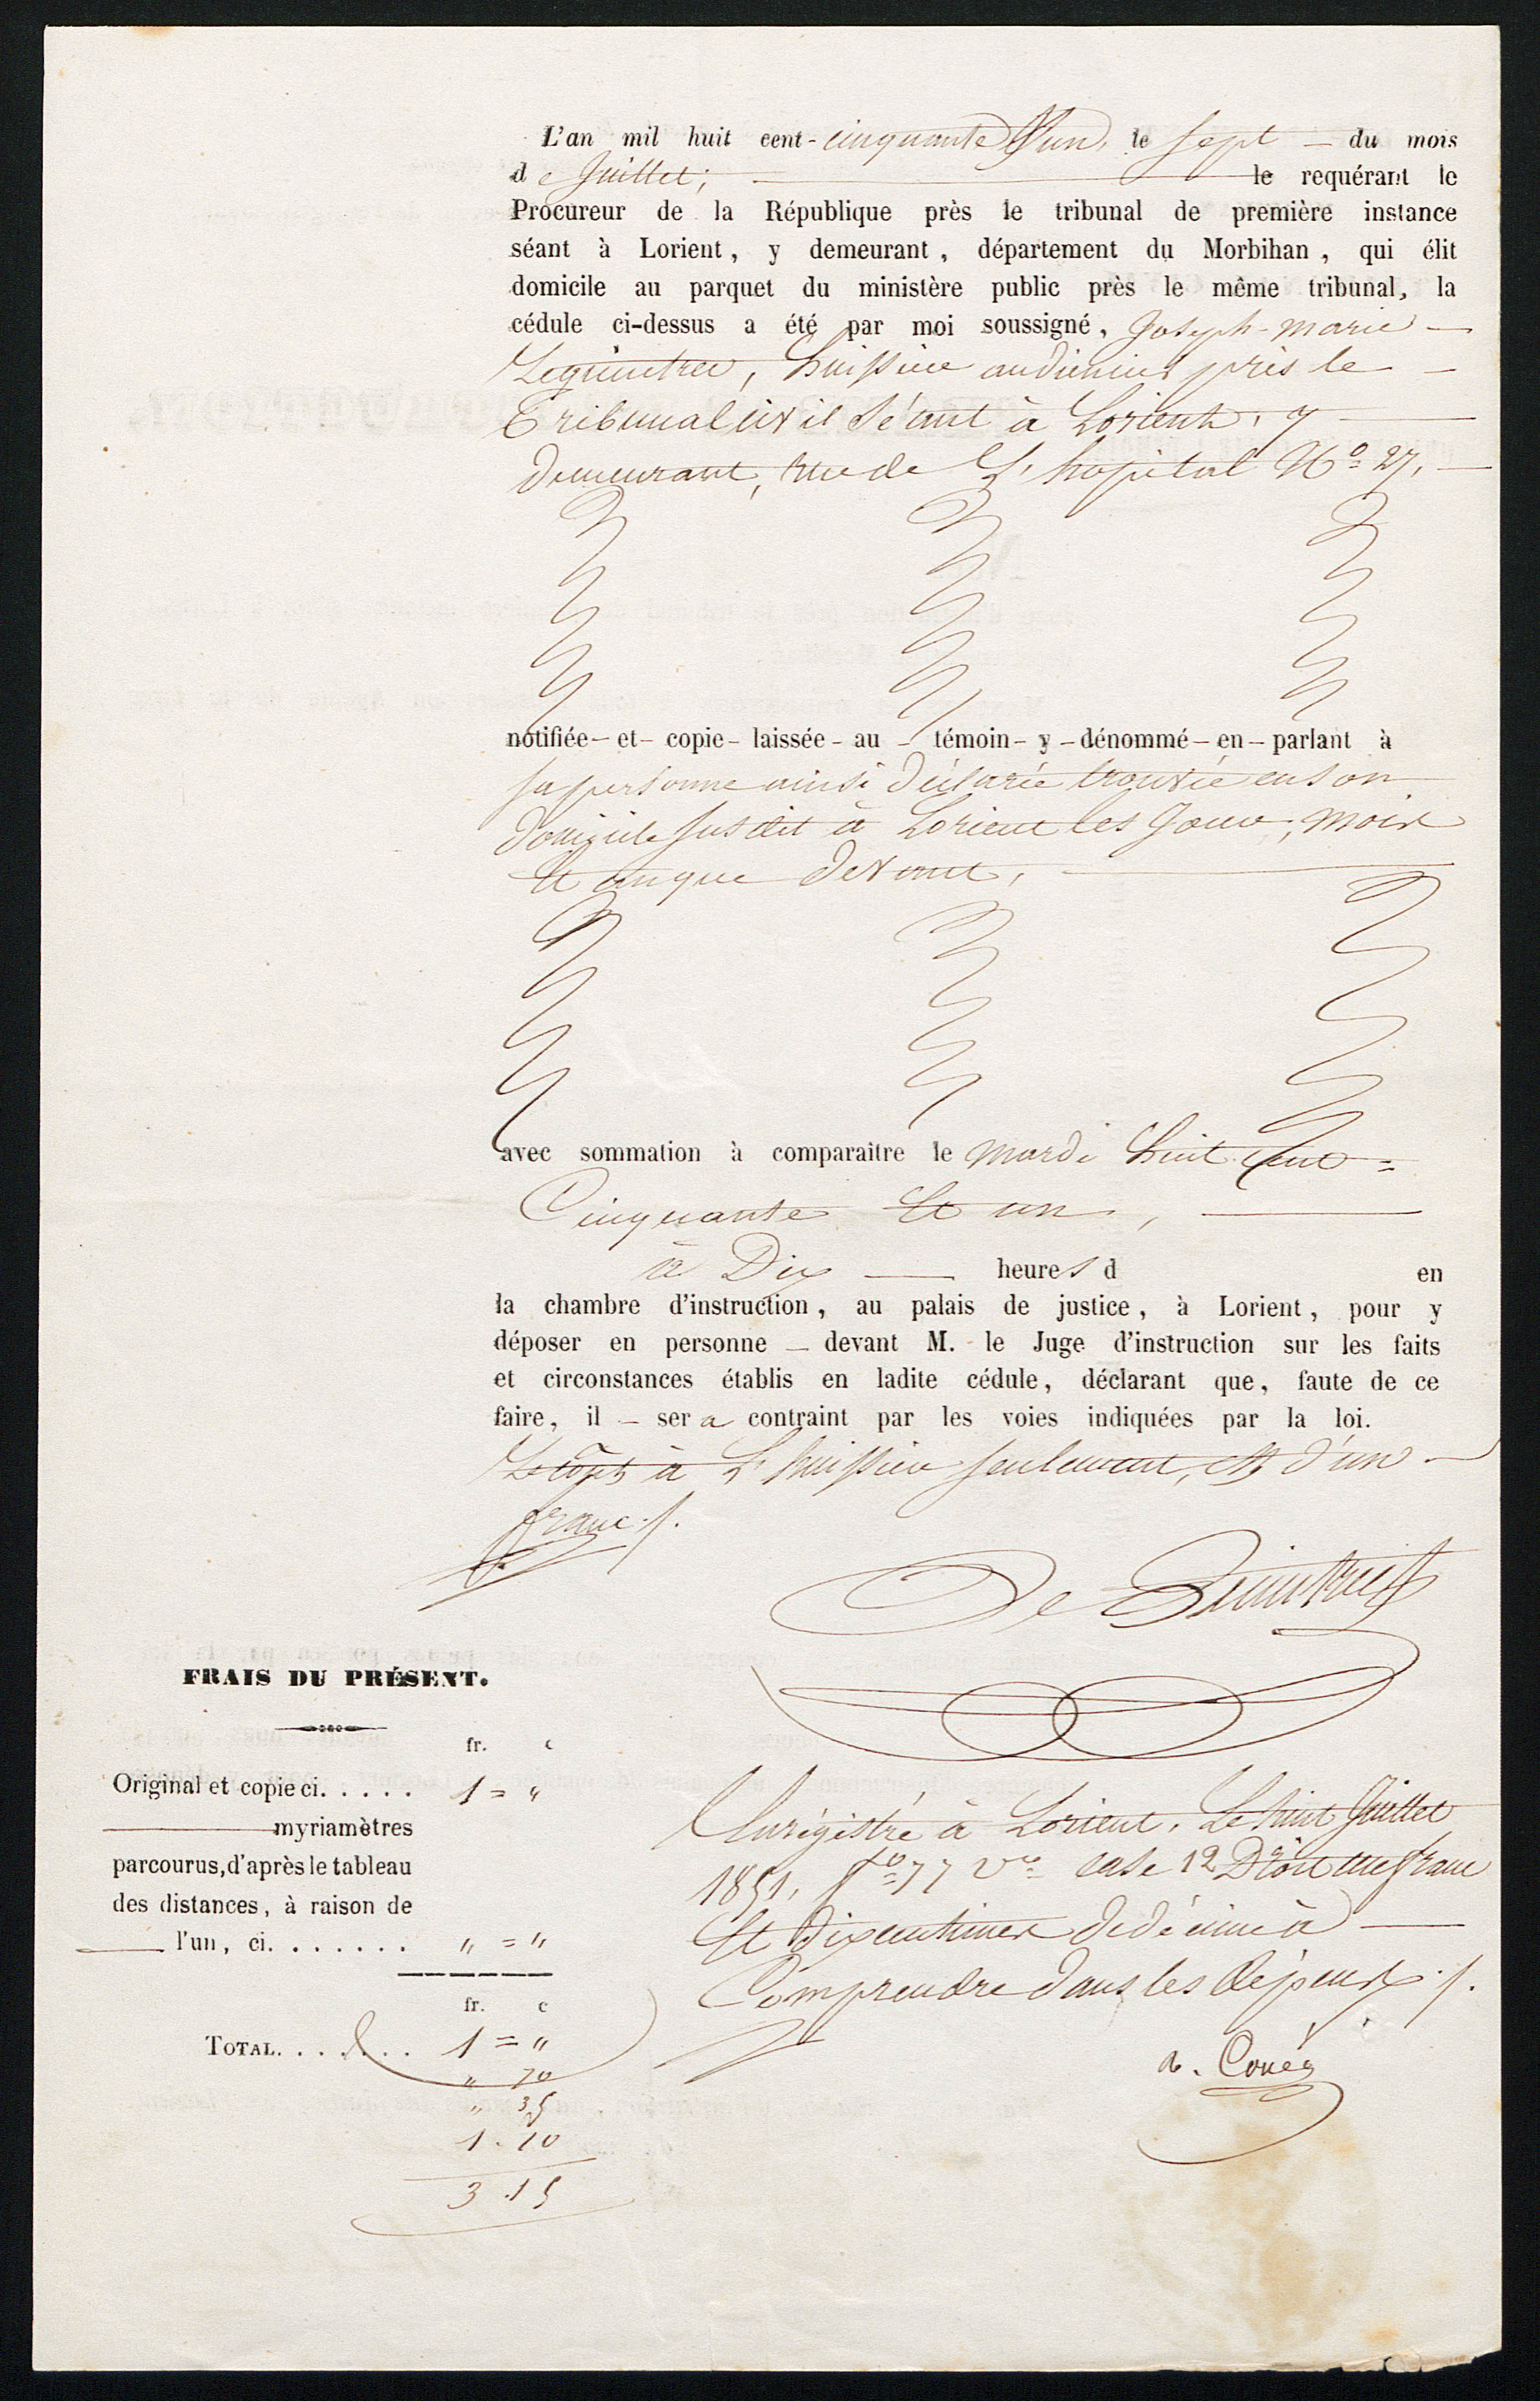 L'an mil huit cent-cinquante et un, le sept – du mois
de Juillet; le requérant le
Procureur de la République près le tribunal de première instance
séant à Lorient, y demeurant, département du Morbihan, qui élit
domicile au parquet du ministère public près le même tribunal, la
cédule ci-dessus a été par moi soussigné, Joseph-Marie –
Lequintrec, huissier audiencier près le –
Tribunal civil séant à Lorient, y
demeurant, rue de L'hopital N° 27, –
notifiée – et – copie – laissée – au – témoin – y – dénommé – en – parlant à
sa personne ainsi déclarée trouvée en son
domicile susdit à Lorient les Jour, mois
et an que devant,
avec sommation à comparaître le mardi huit
Cinquante et un,
à Dix — heures d en
la chambre d'instruction, au palais de justice, à Lorient, pour y
déposer en personne – devant M. le Juge d'instruction sur les faits
et circonstances établis en ladite cédule, déclarant que, faute de ce
faire, il – sera contraint par les voies indiquées par la loi.
Le coût à L'huissier seulement, est d'un –
franc ./.
Le Quintrec
FRAIS DU PRÉSENT.
fr. c
Original et copie ci. . . . . 1 = "
myriamètres
parcourus, d'après le tableau
des distances, à raison de
l'un, ci. . . . . . . " = "
fr. c
TOTAL. . . . . . . 1 = "
" 70
" 35
1 . 10
3 . 15
Enregistré à Lorient, Le huit Juillet
1851, f° 77 v° case 12 Droit un franc
et dix centimes de décime à
Comprendre dans les dépens ./.
Couëg